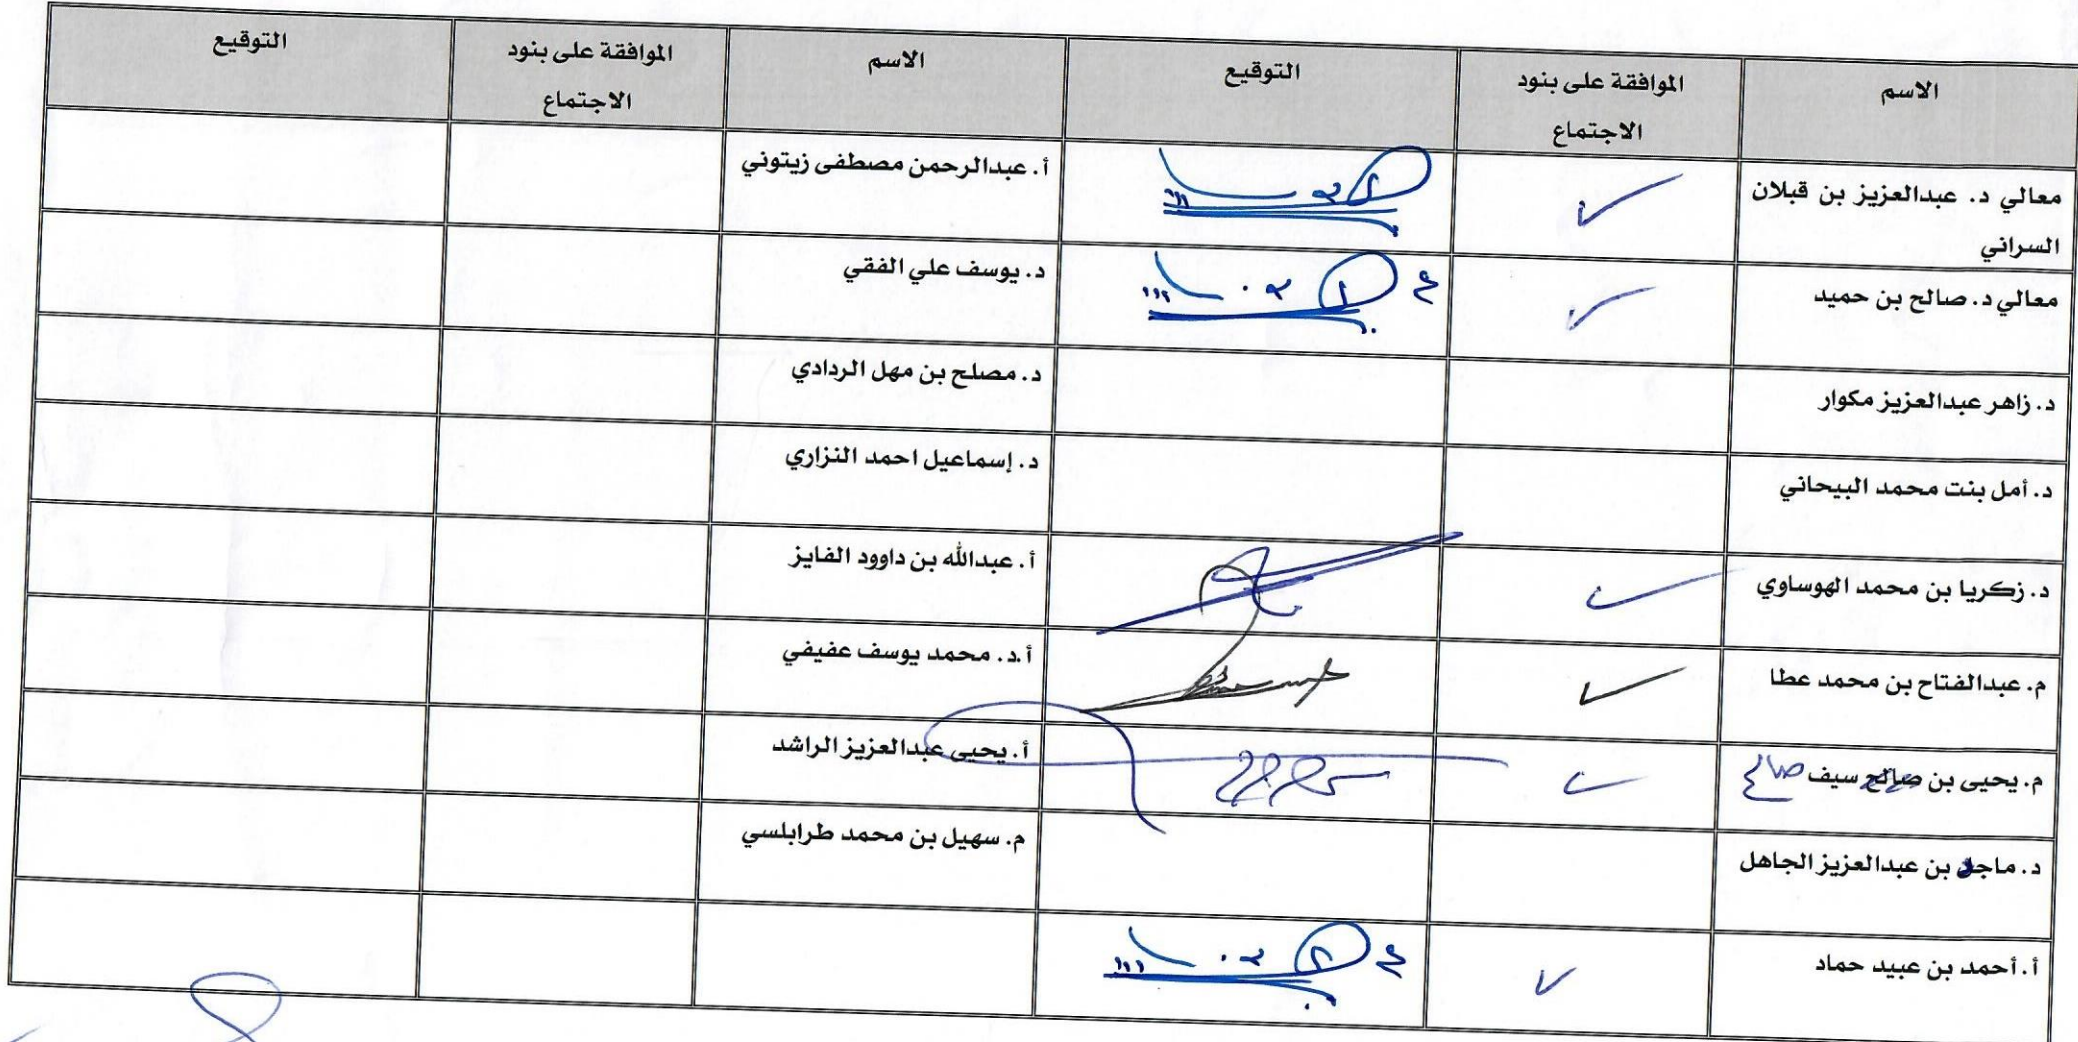 الاسم
الموافقة على بنود
الاجتماع
التوقيع
الاسم
الموافقة على بنود
الاجتماع
التوقيع
معالي د. عبدالعزيز بن قبلان
السراني
أ. عبدالرحمن مصطفى زيتوني
معالي د. صالح بن حميد
د. يوسف علي الفقي
د. زاهر عبدالعزيز مكوار
د. مصلح بن مهل الردادي
د. أمل بنت محمد البيحاني
د. إسماعيل احمد النزاري
د. زكريا بن محمد الهوساوي
أ. عبدالله بن داوود الفايز
م. عبدالفتاح بن محمد عطا
أ.د. محمد يوسف عفيفي
م. يحيى بن صالح سيف صالح
أ. يحيى عبدالعزيز الراشد
د. ماجد بن عبدالعزيز الجاهل
م. سهيل بن محمد طرابلسي
أ. أحمد بن عبيد حماد